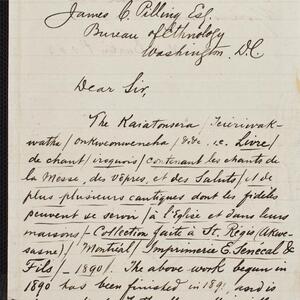 James C. Pilling Esq.
Bureau of Ethnology
Washington, D.C.
Dear Sir,
The Kaiatonsera / Teieriwak-
wathe / onkweonweneha / &c. Livre /
de chant / iroquois / contenant les chants
de la Messe, des Vêpres et des Saluts / et de
plus plusieurs cantiques dont les fidèles
peuvent se servir / à l'Église et dans leurs
maisons / — Collection faite à St. Régis / Akwe-
sasne) / Montréal / Imprimerie E. Senécal &
Fils / — 1890/. The above work begun in
1890 has been finished in 189 and is